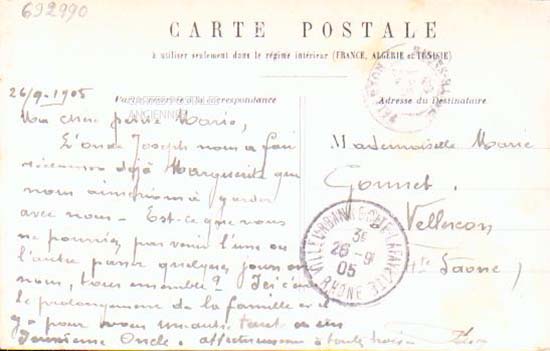 692990
CARTE POSTALE
à utiliser seulement dans le régime intérieur (FRANCE, ALGÉRIE et TUNISIE)
26/9-1905
Partie réservée à la correspondance
Adresse du Destinataire
ANCIENNES
Ma chère petite Marie,
L'oncle Joseph nous a fait
déjà Marguerite que
nous à garder
avec nous. Est-ce que vous
ne pourriez pas venir l'une ou
l'autre passer quelques jours
nous, tous ensemble? Ici c'est
le prolongement de la famille et il
y a pour vous
Oncle. affectueusement à toutes trois
Mademoiselle Marie
Gonnet.
Vellexon
(Hte Saone)
VILLEURBANNE
RHONE
3e
26-9
05